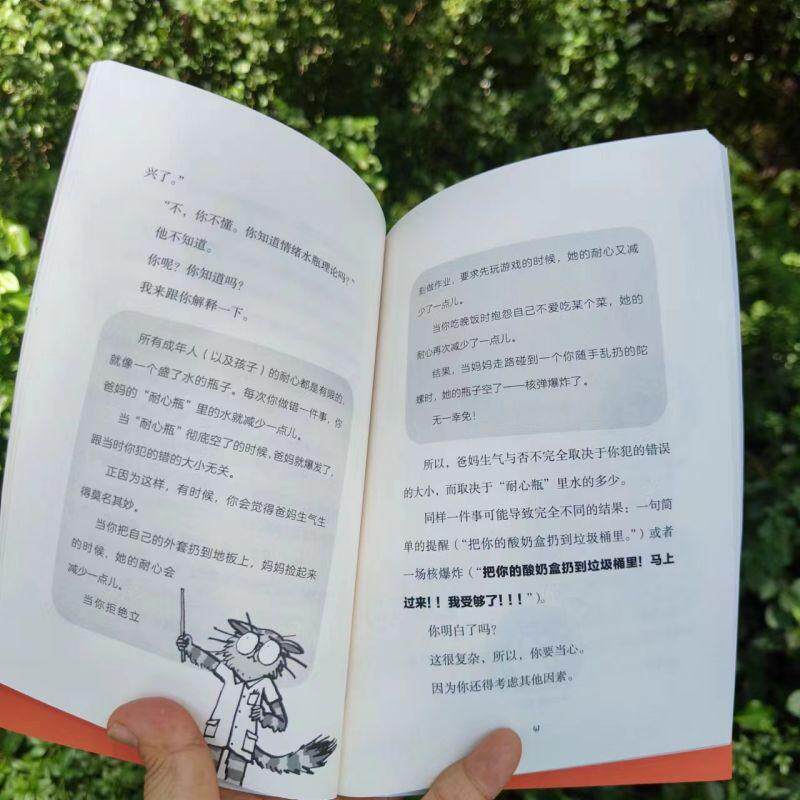 兴了。”
“不，你不懂。你知道情绪水瓶理论吗？”
他不知道。
你呢？你知道吗？
我来跟你解释一下。
所有成年人（以及孩子）的耐心都是有限的，
就像一个盛了水的瓶子。每次你做错一件事，你
爸妈的“耐心瓶”里的水就减少一点儿。
当“耐心瓶”彻底空了的时候，爸妈就爆发了，
跟当时你犯的错的大小无关。
正因为这样，有时候，你会觉得爸妈生气生
得莫名其妙。
当你把自己的外套扔到地板上，妈妈捡起来
的时候，她的耐心会
减少一点儿。
当你拒绝立
刻做作业，要求先玩游戏的时候，她的耐心又减
少了一点儿。
当你吃晚饭时抱怨自己不爱吃某个菜，她的
耐心再次减少了一点儿。
结果，当妈妈走路碰到一个你随手乱扔的陀
螺时，她的瓶子空了——核弹爆炸了。
无一幸免！
所以，爸妈生气与否不完全取决于你犯的错误
的大小，而取决于“耐心瓶”里水的多少。
同样一件事可能导致完全不同的结果：一句简
单的提醒（“把你的酸奶盒扔到垃圾桶里。”）或者
一场核爆炸（“把你的酸奶盒扔到垃圾桶里！马上
过来！！我受够了！！！”）。
你明白了吗？
这很复杂，所以，你要当心。
因为你还得考虑其他因素。